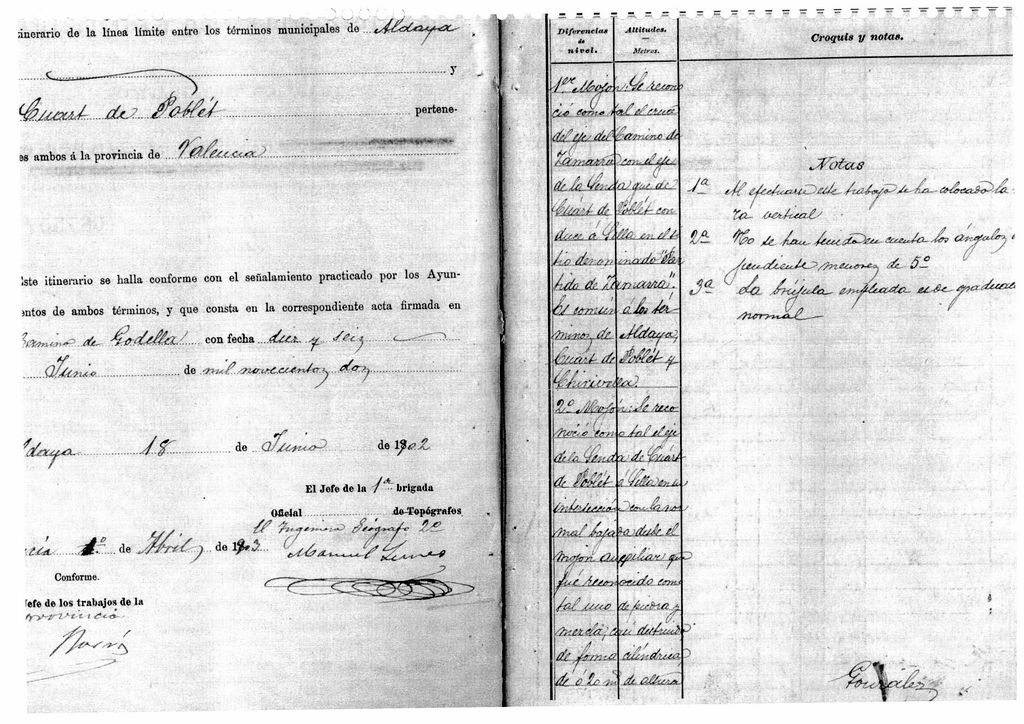 itinerario de la línea límite entre los términos municipales de Aldaya
y
Cuart de Poblét pertene-
es ambos á la provincia de Valencia
Este itinerario se halla conforme con el señalamiento practicado por los Ayun-
entos de ambos términos, y que consta en la correspondiente acta firmada en
Camino de Godella con fecha diez y seiz
Junio de mil novecientoz doz
ldaya 18 de Junio de 1902
El Jefe de la 1ª brigada
Oficial de Topógrafos
El Ingeniero Geógrafo 2º
cia 1º de Abril de 1903.
Manuel
Conforme.
Jefe de los trabajos de la
provincia
Diferencias de nivel.
Altitudes.
Metros.
Croquis y notas.
1er Mojón: Se recono
ció como tal el cruce
del eje del Camino de
Zamarra con el eje
de la Senda que de
Cuart de Poblét con
duce á Silla en el si
tio denominado "Par
tido de Zamarra".
Es común á los tér
minoz de Aldaya,
Cuart de Poblét y
Chirivella.
2º Mojón: Se reco
noció como tal el eje
de la Senda de Cuart
de Poblét á Silla en su
intersección con la nor
mal bajada desde el
mojón auxiliar que
fué reconocido como
tal uno de piedra y
mezcla, casi destruido
de forma cilíndrica,
de 0'20 m de altura
Notas
1ª Al efectuarse este trabajo se ha colocado la
ra vertical
2ª No se han tenido en cuenta los ánguloz
pendiente menorez de 5º
3ª La brújula empleada es de graduac
normal
González